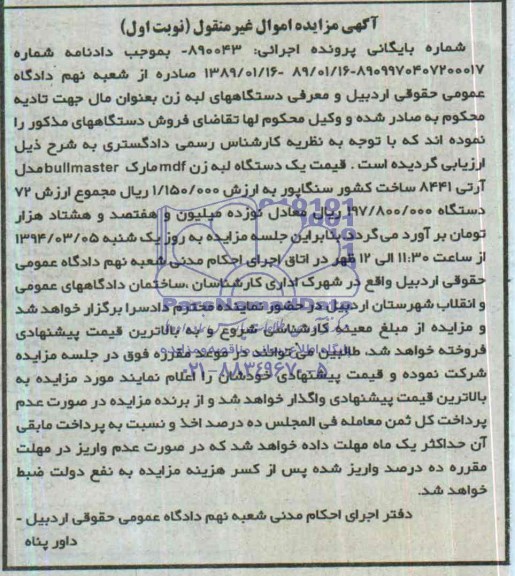 آگهی مزایده اموال غیر منقول (نوبت اول)
شماره بایگانی پرونده اجرائی: ۸۹۰۰۴۳- بموجب دادنامه شماره
۸۹۰۹۹۷۰۴۰۷۲۰۰۰۱۷-۸۹/۰۱/۱۶ -۱۳۸۹/۰۱/۱۶ صادره از شعبه نهم دادگاه
عمومی حقوقی اردبیل و معرفی دستگاههای لبه زن بعنوان مال جهت تادیه
محکوم به صادر شده و وکیل محکوم لها تقاضای فروش دستگاههای مذکور را
نموده اند که با توجه به نظریه کارشناس رسمی دادگستری به شرح ذیل
ارزیابی گردیده است . قیمت یک دستگاه لبه زن mdf مارک bullmaster مدل
آرتی ۸۴۴۱ ساخت کشور سنگاپور به ارزش ۱/۱۵۰/۰۰۰ ریال مجموع ارزش ۷۲
دستگاه ۱۹۷/۸۰۰/۰۰۰ ریال معادل نوزده میلیون و هفتصد و هشتاد هزار
تومان بر آورد می‌گردد بنابراین جلسه مزایده به روز یک شنبه ۱۳۹۴/۰۳/۰۵
از ساعت ۱۱:۳۰ الی ۱۲ ظهر در اتاق اجرای احکام مدنی شعبه نهم دادگاه عمومی
حقوقی اردبیل واقع در شهرک اداری کارشناسان ،ساختمان دادگاههای عمومی
و انقلاب شهرستان اردبیل در حضور نماینده محترم دادسرا برگزار خواهد شد
و مزایده از مبلغ معینه کارشناسی شروع و به بالاترین قیمت پیشنهادی
فروخته خواهد شد. طالبین می‌توانند در موعد مقرره فوق در جلسه مزایده
شرکت نموده و قیمت پیشنهادی خودشان را اعلام نمایند مورد مزایده به
۰۲۱-۸۸۳۴۹۶۷۰-۵
بالاترین قیمت پیشنهادی واگذار خواهد شد و از برنده مزایده در صورت عدم
پرداخت کل ثمن معامله فی المجلس ده درصد اخذ و نسبت به پرداخت مابقی
آن حداکثر یک ماه مهلت داده خواهد شد که در صورت عدم واریز در مهلت
مقرره ده درصد واریز شده پس از کسر هزینه مزایده به نفع دولت ضبط
خواهد شد.
دفتر اجرای احکام مدنی شعبه نهم دادگاه عمومی حقوقی اردبیل -
داور پناه